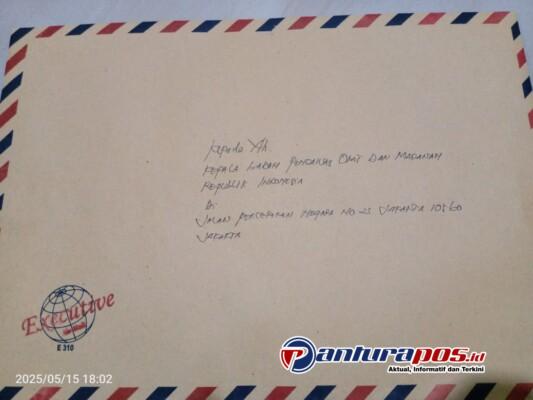 Kepada Yth.
KEPALA BADAN PENGAWAS OBAT DAN MAKANAN
REPUBLIK INDONESIA
Di
JALAN PERCETAKAN NEGARA NO-23 JAKARTA 10560
JAKARTA
Executive
E 310
2025/05/15 18:02
Panturapos.id
Aktual, Informatif dan Terkini